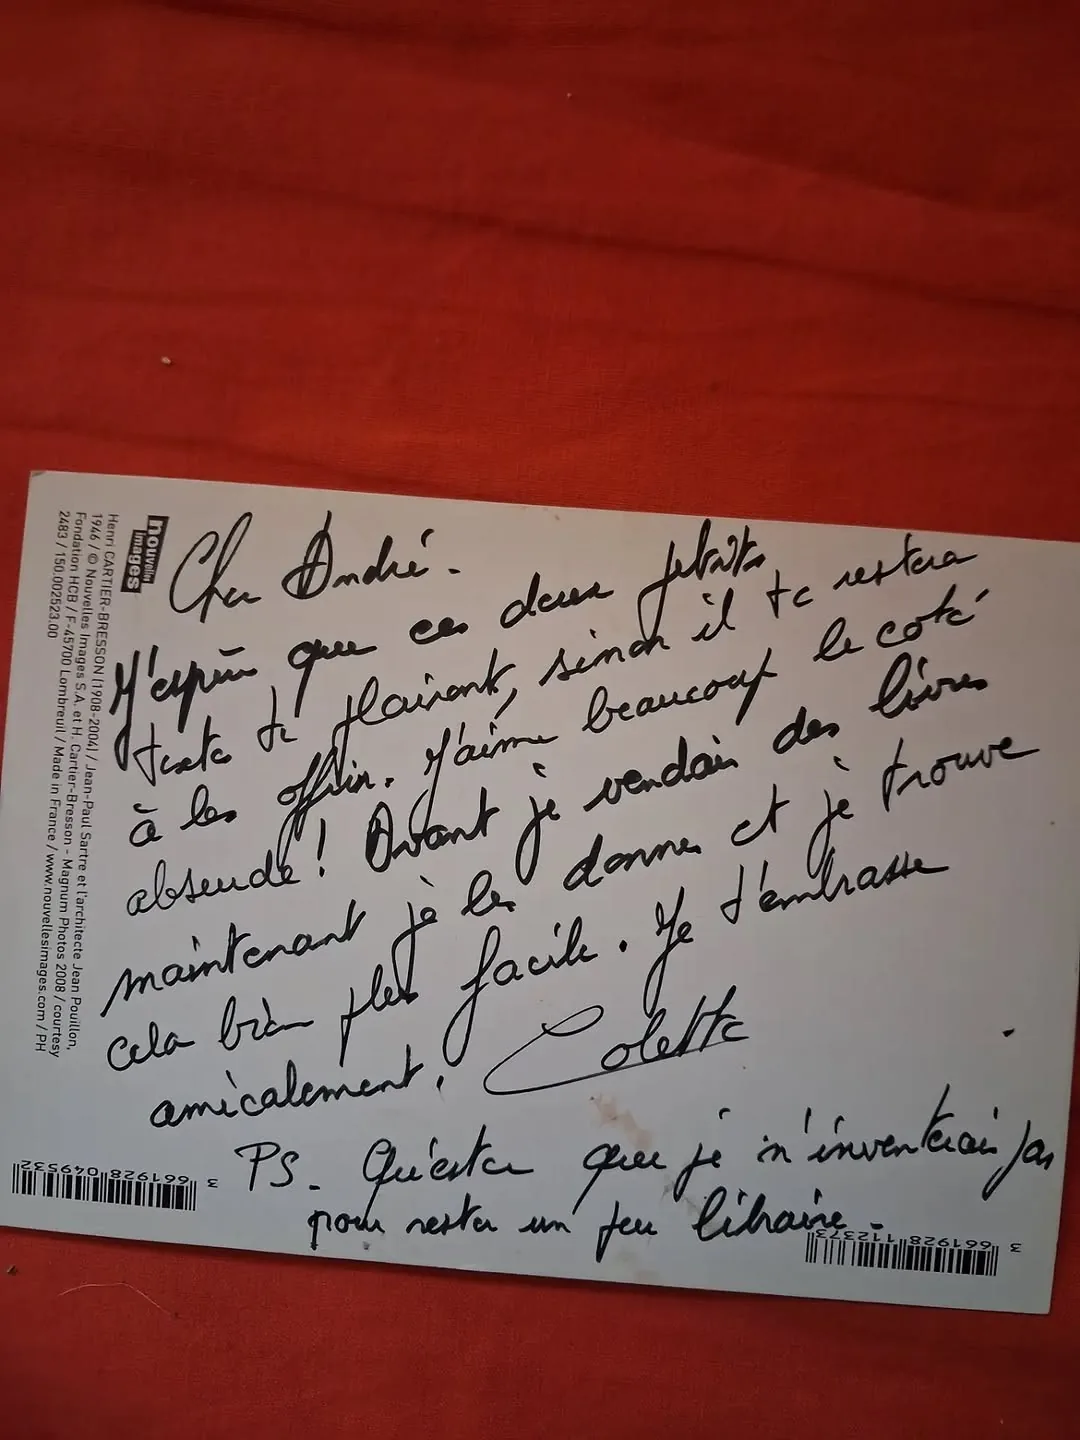 Cher André.
J'espère que ces deux petits
texte te plairont, sinon il te restera
à les offrir. J'aime beaucoup le coté
absurde! Avant je vendais des livres
maintenant je les donne et je trouve
cela bien plus facile. Je t'embrasse
amicalement, Colette
PS. Qu'est ce que je n'inventerais pas
pour rester un peu libraire.
nouvelles
images
Henri CARTIER-BRESSON (1908-2004) / Jean-Paul Sartre et l'architecte Jean Pouillon,
1946 / © Nouvelles Images S.A. et H. Cartier-Bresson - Magnum Photos 2008 / courtesy
Fondation HCB / F-45700 Lombreuil / Made in France / www.nouvellesimages.com / PH
2483 / 150.002523.00
3 661928 049532
3 661928 112373